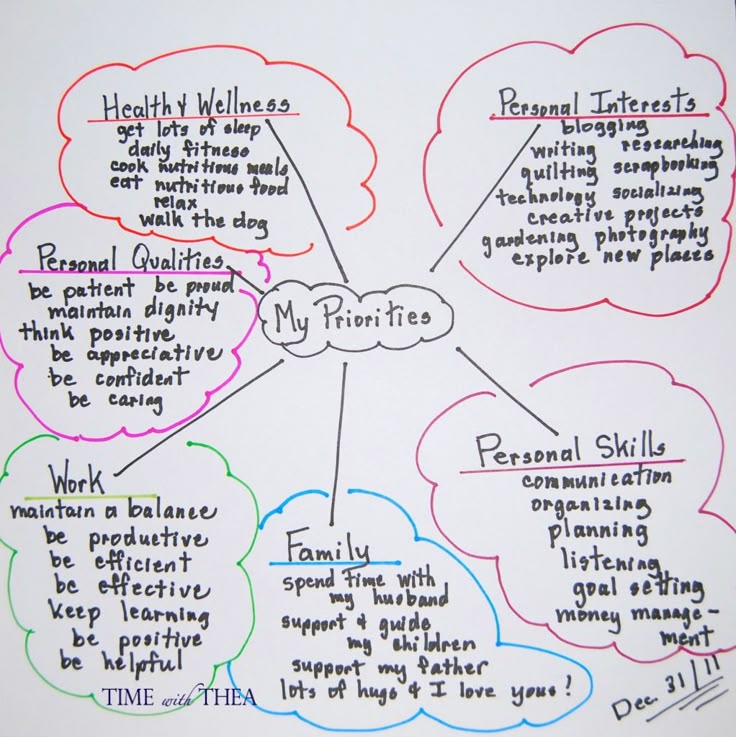 Health & Wellness
get lots of sleep
daily fitness
cook nutritious meals
eat nutritious food
relax
walk the dog
Personal Interests
blogging
writing researching
quilting scrapbooking
technology socializing
creative projects
gardening photography
explore new places
Personal Qualities
be patient be proud
maintain dignity
think positive
be appreciative
be confident
be caring
My Priorities
Personal Skills
communication
organizing
planning
listening
goal setting
money manage-
ment
Work
maintain a balance
be productive
be efficient
be effective
keep learning
be positive
be helpful
Family
spend time with
my husband
support & guide
my children
support my father
lots of hugs & I love yous!
Dec. 31/11
TIME with THEA